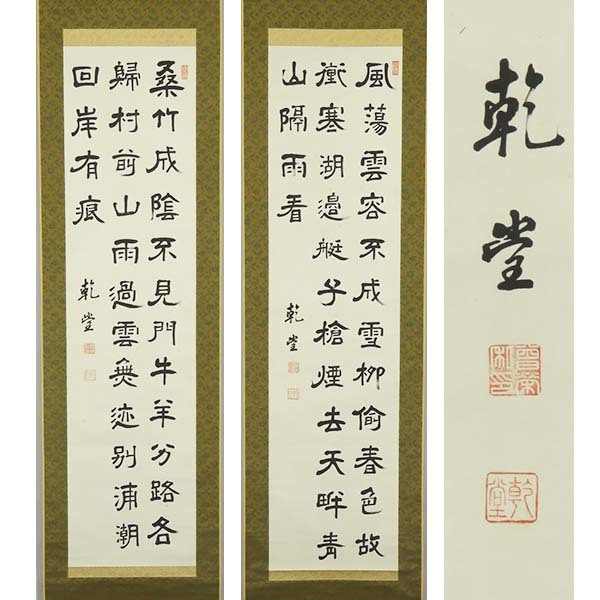 桑竹成陰不見門牛羊分路各
歸村前山雨過雲無迹别浦潮
回岸有痕
乾堂
風蕩雲容不成雪柳偷春色故
衝寒湖邊艇子槍煙去天畔青
山隔雨看
乾堂
乾堂
乾堂